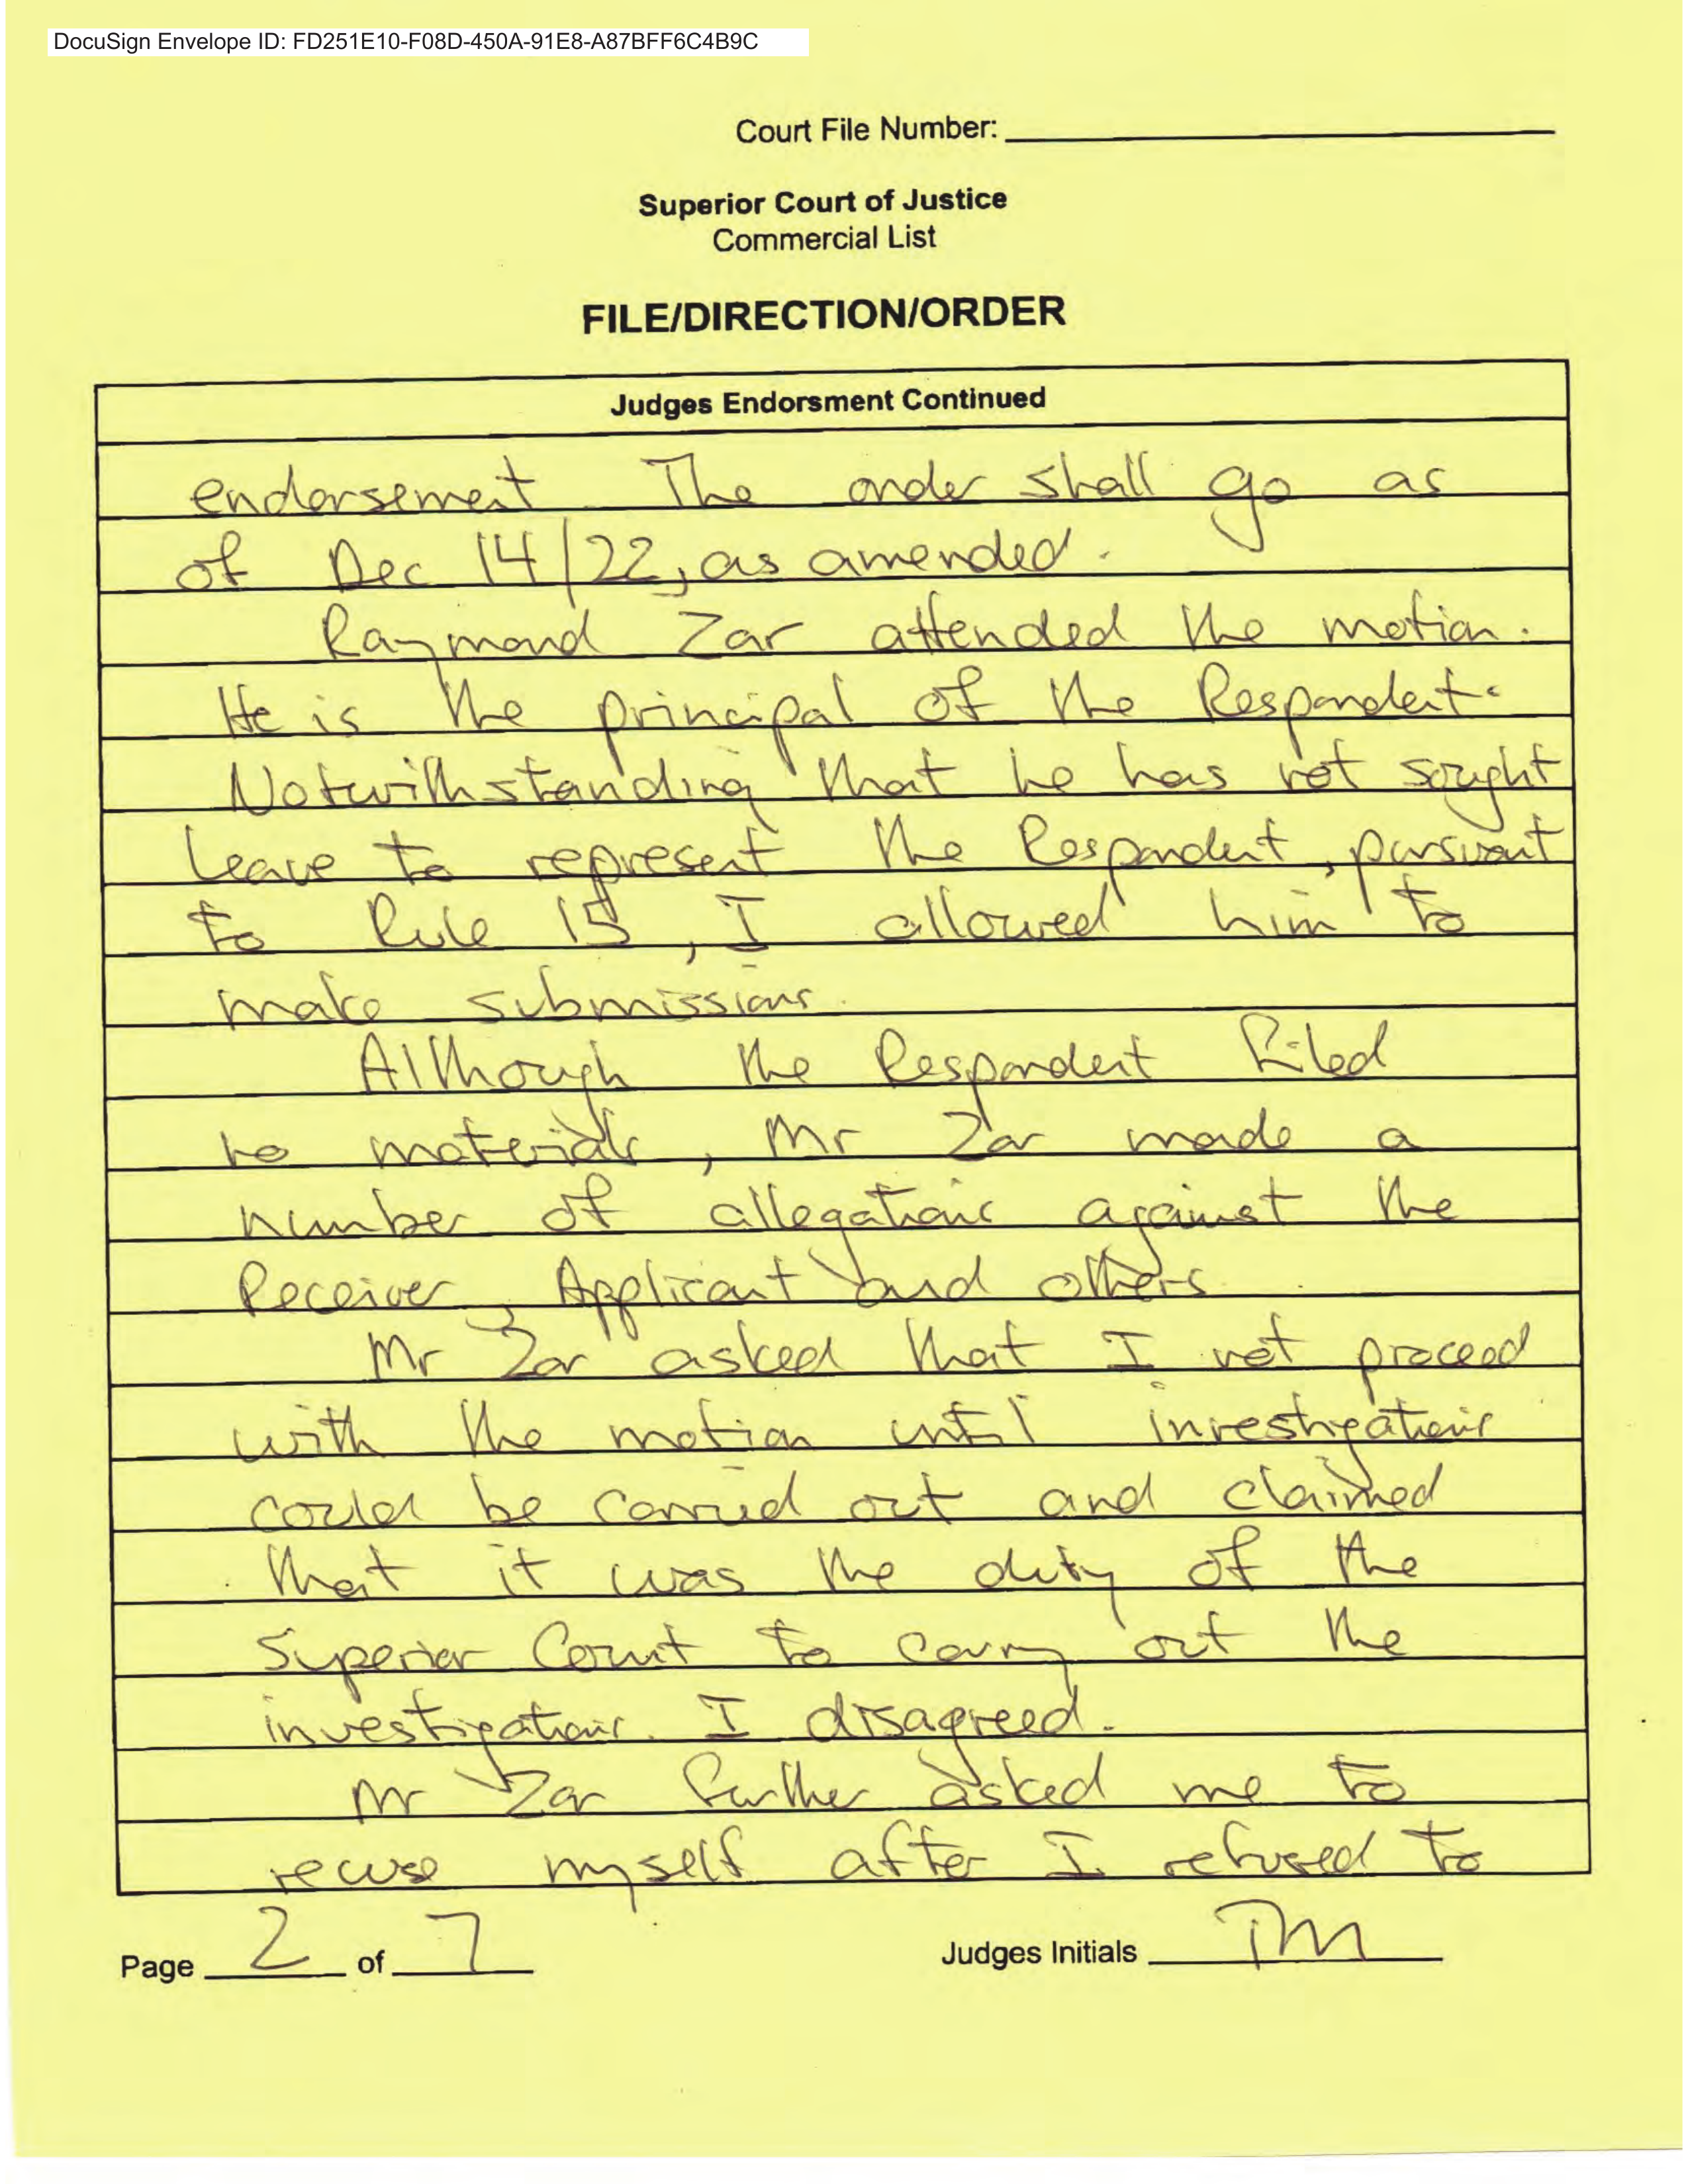 DocuSign Envelope ID: FD251E10-F08D-450A-91E8-A87BFF6C4B9C
Court File Number:
Superior Court of Justice
Commercial List
FILE/DIRECTION/ORDER
Judges Endorsment Continued
endorsement The order shall go as
of Dec 14/22, as amended.
Raymond Zar attended the motion.
He is the principal of the Respondent.
Notwithstanding that he has not sought
leave to represent the Respondent, pursuant
to Rule 15, I allowed him to
make submissions.
Although the Respondent filed
no materials, Mr Zar made a
number of allegations against the
Receiver, Applicant and others
Mr Zar asked that I not proceed
with the motion until investigations
could be carried out and claimed
that it was the duty of the
Superior Court to carry out the
investigations. I disagreed.
Mr Zar further asked me to
recuse myself after I refused to
Page 2 of 7
Judges Initials TM